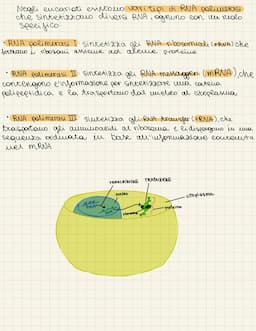 Negli eucarioti esistono vari tipi di RNA polimerasi
che sintetizzano diversi RNA, ognuno con un ruolo
specifico
• RNA polimerasi I sintetizza gli RNA ribosomiali (rRNA) che
formano i ribosomi insieme ad alcune proteine
• RNA polimerasi II sintetizza gli RNA messaggeri (mRNA), che
contengono l'informazione per sintetizzare una catena
polipeptidica e la trasportano dal nucleo al citoplasma
• RNA polimerasi III sintetizza gli RNA transfer (tRNA), che
trasportano gli amminoacidi al ribosoma e li dispongono in una
sequenza ordinata in base all'informazione contenuta
nel mRNA
TRASCRIZIONE
TRADUZIONE
citoplasma